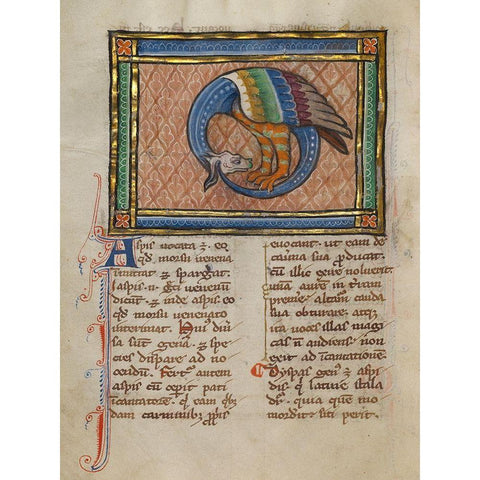 Aspis vocata ꝙ eo
ꝙ morsu venena
inmittat ⁊ spargat
Ias pis .n. Gͥ venenū
dicūt ⁊ inde aspis eo
ꝙ morsu venenato
interimat. Huiꝰ diū
sa sūt genͣa ⁊ spe
cies dispare ad no
cendū. Ferͭ autem
aspis cū ceperit pati
incantatorē q̄ eam ꝗbꝰ
dam carminibꝫ ꝓpͥis
euocant. ut eam de
cauerna sua ꝓducat.
cū illic exire noluerit
unā aurē in t̄ram
premit. alteram cauda
sua obturare. atqꝫ
ita uoces illas magi
cas ñ audiens. non
exit ad incantationē.
Dyspas genꝰ ē aspi
dis. q̄ latine situla
dr̄. quia quē mo
morderit siti perit.